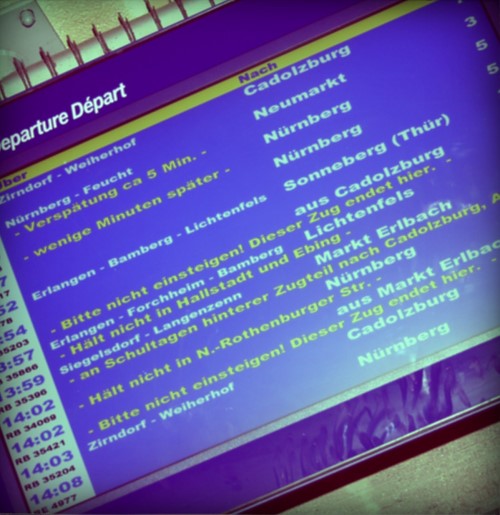 eparture Départ
über Nach
Zirndorf - Weiherhof Cadolzburg
Neumarkt 3
Nürnberg - Feucht Nürnberg 5
- Verspätung ca 5 Min. -
Nürnberg 5
- wenige Minuten später -
Erlangen - Bamberg - Lichtenfels Sonneberg (Thür)
aus Cadolzburg
- Bitte nicht einsteigen! Dieser Zug endet hier. -
:52 Erlangen - Forchheim - Bamberg Lichtenfels
- Hält nicht in Hallstadt und Ebing -
:54 Siegelsdorf - Langenzenn Markt Erlbach
35203 - an Schultagen hinterer Zugteil nach Cadolzburg, A
3:57 Nürnberg
35866 - Hält nicht in N.-Rothenburger Str. -
13:59 aus Markt Erlba
RB 35396 - Bitte nicht einsteigen! Dieser Zug endet hier. -
14:02 Zirndorf - Weiherhof Cadolzburg
RB 34069
14:02 Nürnberg
RB 35421
14:03
RB 35204
14:08
RE 4977